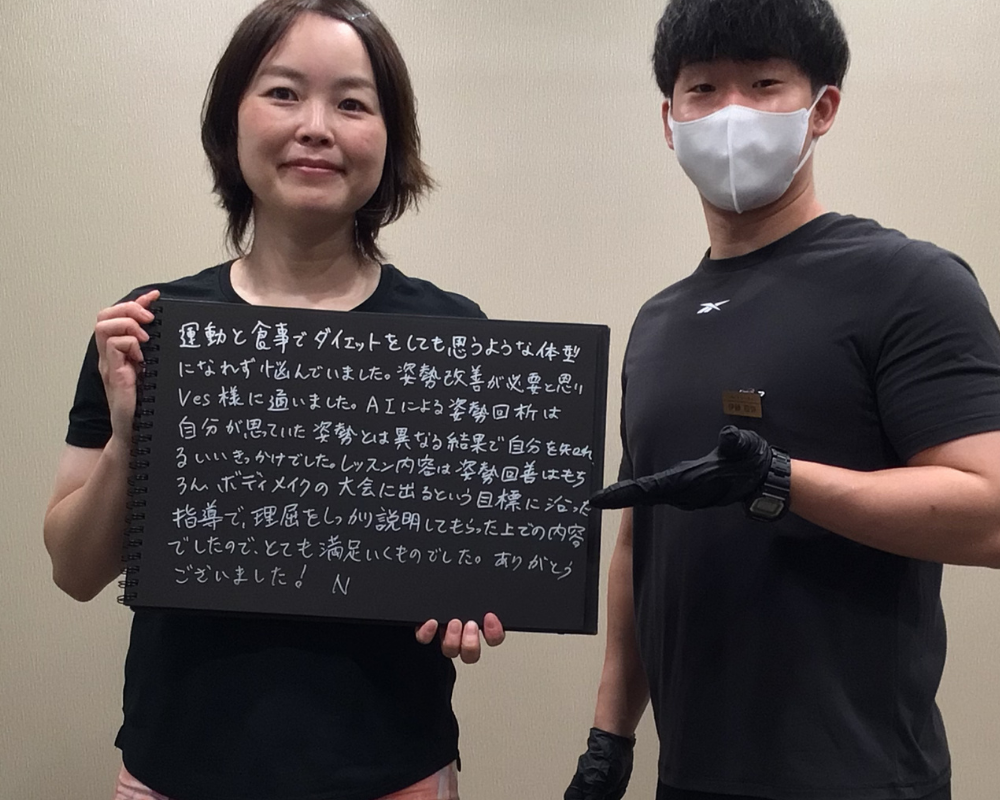 運動と食事でダイエットをしても思うような体型
になれず悩んでいました。姿勢改善が必要と思い
Ves様に通いました。AIによる姿勢回析は
自分が思っていた姿勢とは異なる結果で自分を知れ
るいいきっかけでした。レッスン内容は姿勢回善はもち
ろん、ボディメイクの大会に出るという目標に沿った
指導で、理屈をしっかり説明してもらった上での内容
でしたので、とても満足いくものでした。ありがとう
ございました! N